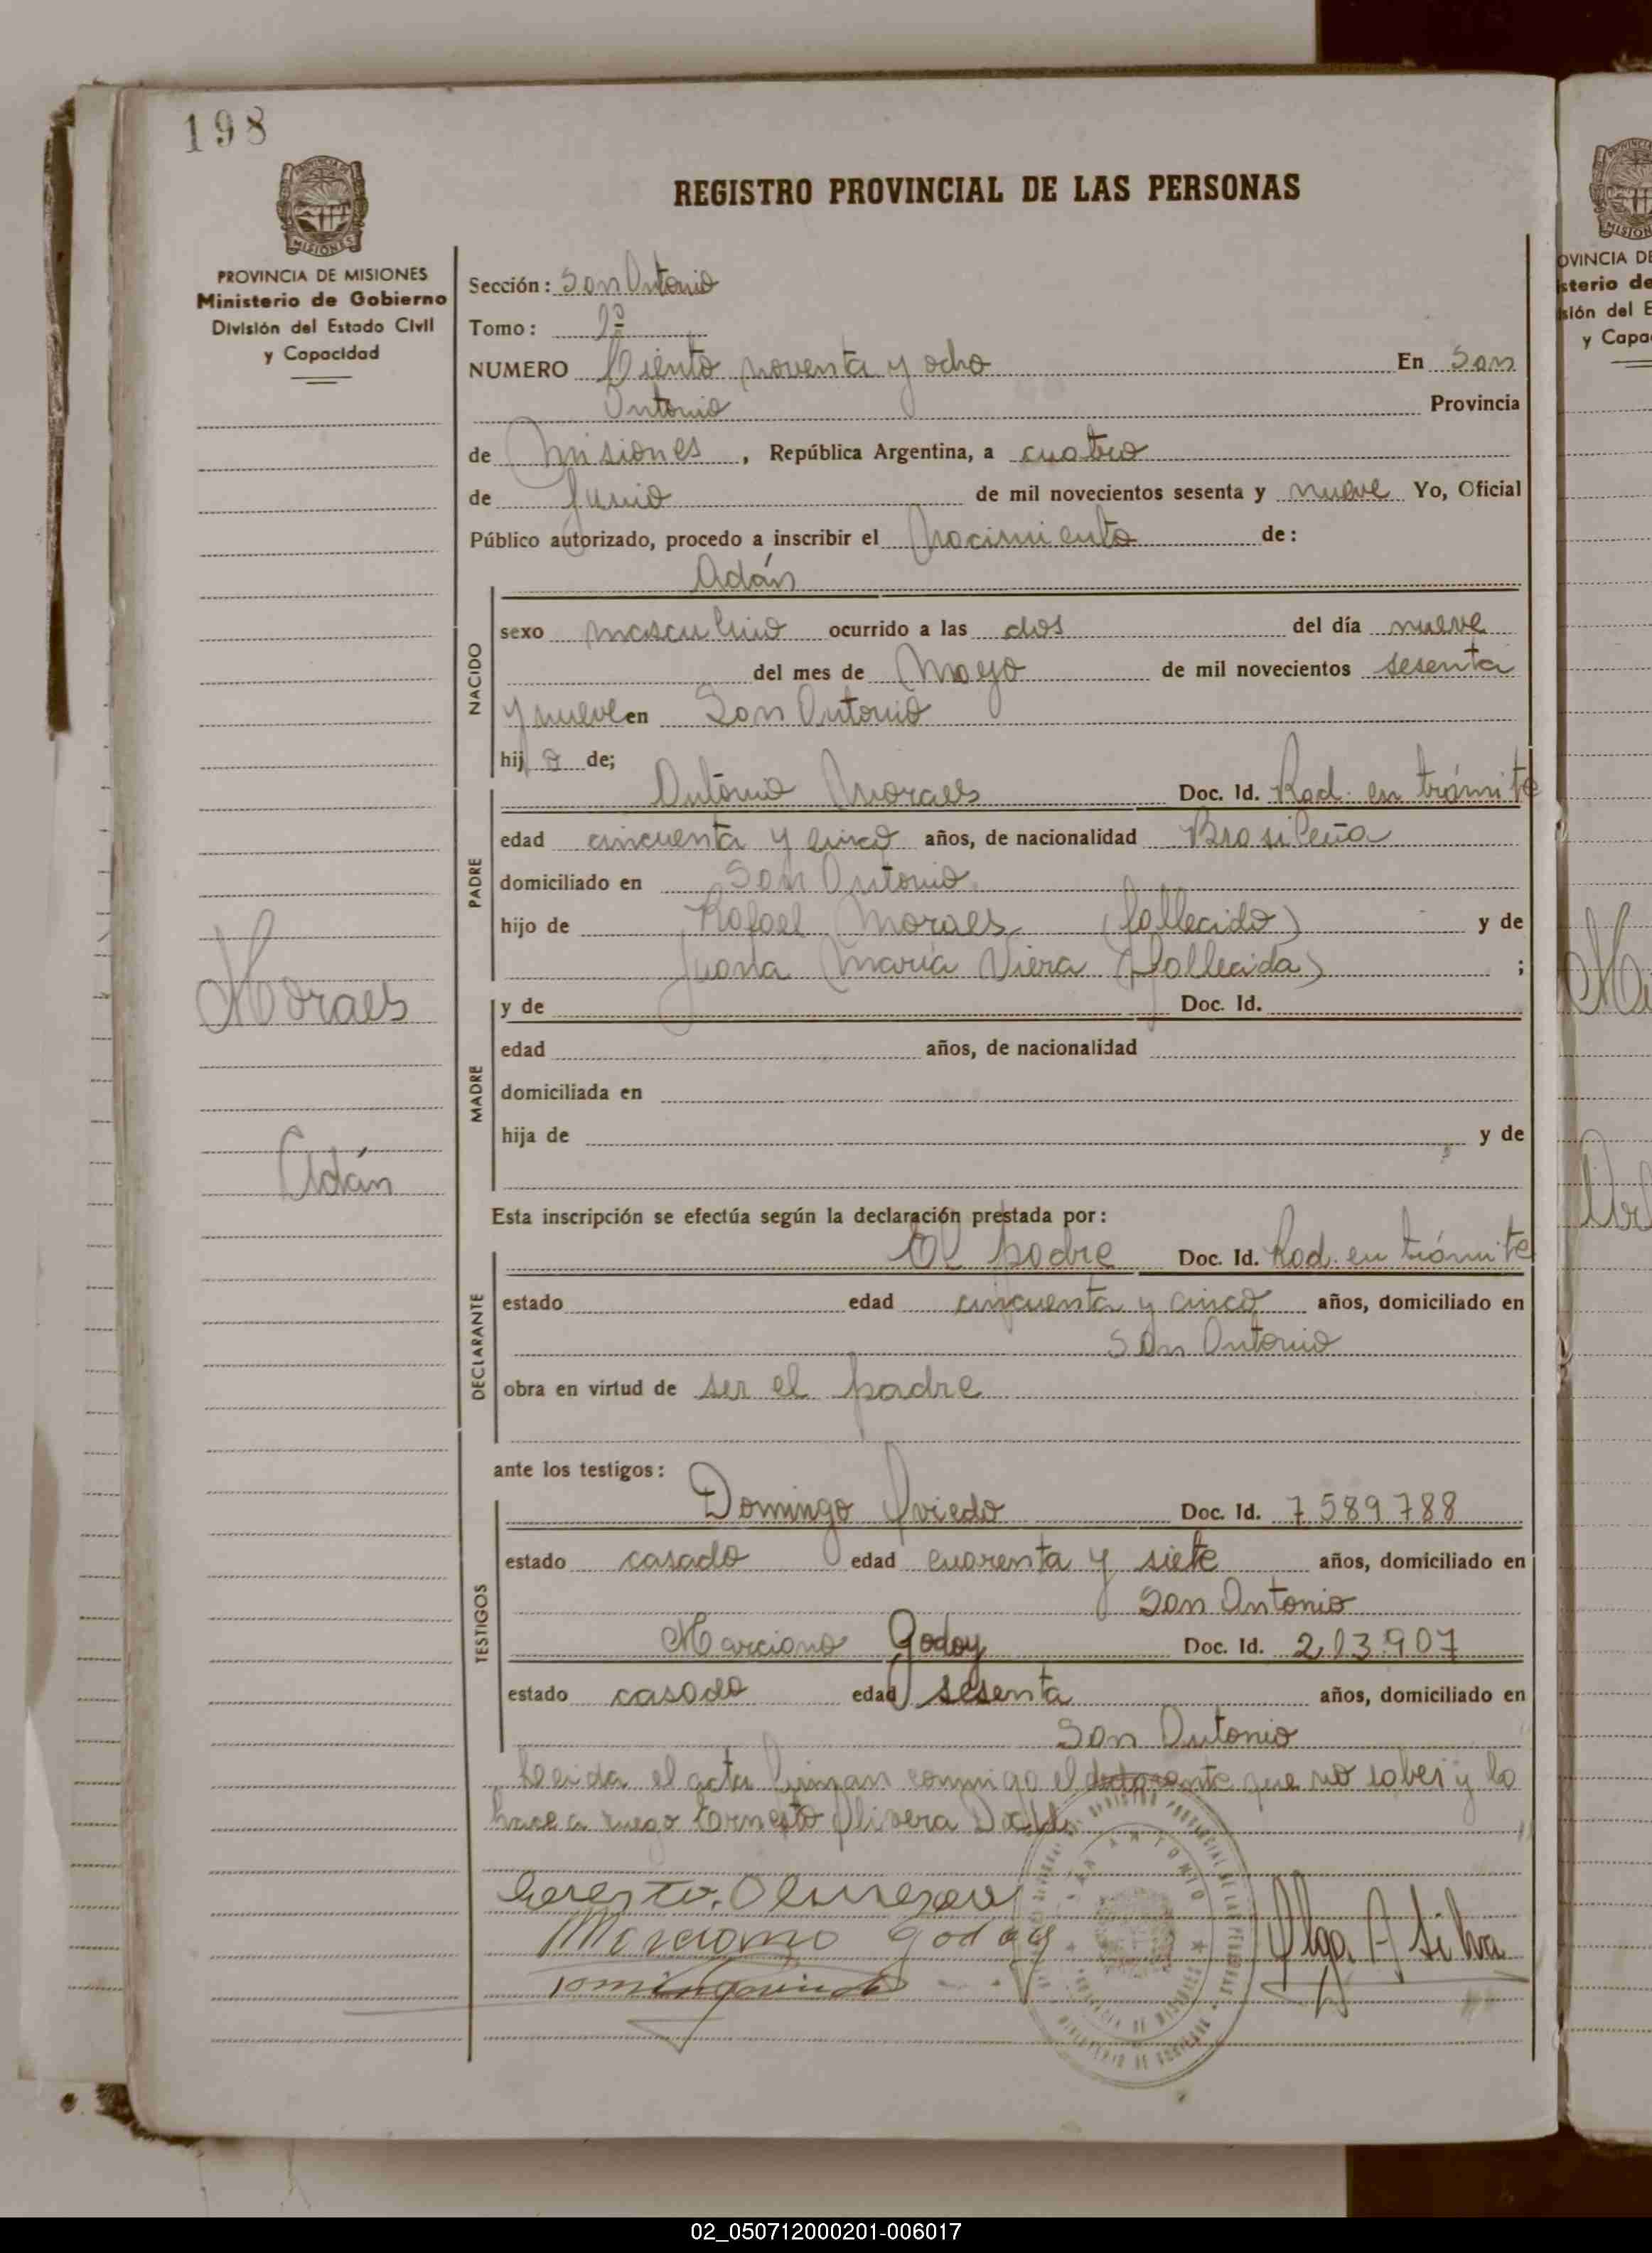 198
REGISTRO PROVINCIAL DE LAS PERSONAS
PROVINCIA DE MISIONES
Ministerio de Gobierno
División del Estado Civil
y Capacidad
Sección: San Antonio
Tomo: 1º
NUMERO Ciento noventa y ocho En San
Antonio Provincia
de Misiones, República Argentina, a cuatro
de Junio de mil novecientos sesenta y nueve Yo, Oficial
Público autorizado, procedo a inscribir el Nacimiento de:
Adán
NACIDO
sexo masculino ocurrido a las dos del día nueve
del mes de Mayo de mil novecientos sesenta
y nueve en San Antonio
hijo de;
PADRE
Antonio Moraes Doc. Id. Rad. en trámite
edad cincuenta y cinco años, de nacionalidad Brasileña
domiciliado en San Antonio
hijo de Rafael Moraes (fallecido) y de
Juana María Viera (fallecida) ;
Moraes
Adán
MADRE
y de Doc. Id.
edad años, de nacionalidad
domiciliada en
hija de y de
Esta inscripción se efectúa según la declaración prestada por:
DECLARANTE
El padre Doc. Id. Rad. en trámite
estado edad cincuenta y cinco años, domiciliado en
San Antonio
obra en virtud de ser el padre
ante los testigos:
TESTIGOS
Domingo Oviedo Doc. Id. 7589788
estado casado edad cuarenta y siete años, domiciliado en
San Antonio
Marciano Godoy Doc. Id. 213.907
estado casado edad sesenta años, domiciliado en
San Antonio
Leida el acta firman conmigo el que no saber y lo
hace a ruego Ernesto Olivera
Marciano Godoy
Olga A Silva
SAN ANTONIO
PROVINCIA DE
y Capa
02_050712000201-006017